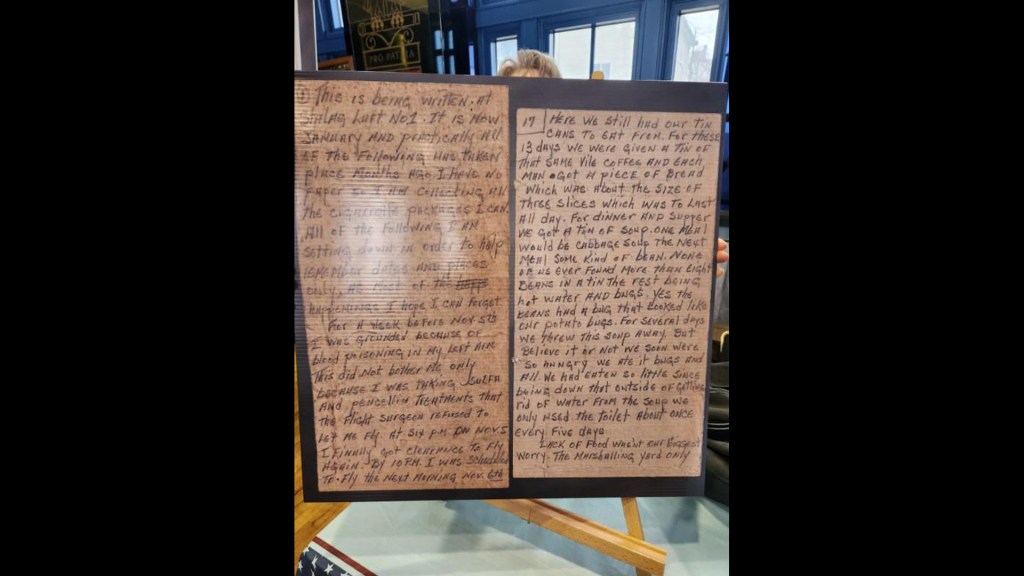 PRO PATRIA
① THIS IS BEING WRITTEN. AT
STALAG LUFT NO1. IT IS NOW
JANUARY AND PRACTICALLY All
OF THE FOllOWING WAS TAKEN
PlACE MONTHS AGO. I HAVE NO
PAPER SO I AM COllECTING All
THE CIGARETTE PACKAGES I CAN.
All OF THE FOllOWING I AM
SETTING DOWN IN ORDER TO HElp
REMEMBER DATES AND PlACES
ONly, AS MOST OF THE
HAPPENINGS I HOPE I CAN FORGET.
FOR A WEEK BEFORE NOV 5TH
I WAS GROUNDED BECAUSE OF
BlOOD POISONING IN MY LEFT ARM
THIS DID NOT BOTHER ME ONLY
BECAUSE I WAS TAKING SULFA
AND PENCEllIN TREATMENTS THAT
THE FlIGHT SURGEON REFUSED TO
LET ME FLY. AT SIX P.M. ON NOV. 5
I FINAlly GOT CLEARANCE TO FLY
AGAIN. BY 10 P.M. I WAS SCHEDULED
TO-FLY THE NEXT MORNING NOV. 6TH
17 HERE WE STILL HAD OUR TIN
CANS TO EAT FROM. FOR THESE
13 DAYS WE WERE GIVEN A TIN OF
THAT SAME VILE COFFEE AND EACH
MAN GOT A PIECE OF BREAD
WHICH WAS ABOUT THE SIZE OF
THREE SLICES WHICH WAS TO LAST
All DAY. FOR DINNER AND SUPPER
WE GOT A TIN OF SOUP. ONE MEAl
WOULD BE CABBAGE SOUP THE NEXT
MEAl SOME KIND OF BEAN. NONE
OF US EVER FOUND MORE THAN EIGHT
BEANS IN A TIN THE REST BEING
HOT WATER AND BUGS. YES THE
BEANS HAD A BUG THAT LOOKED LIKE
OUR POTATO BUGS. FOR SEVERAL DAYS
WE THREW THIS SOUP AWAY. BUT
BELIEVE IT OR NOT WE SOON WERE
SO HUNGRY WE ATE IT BUGS AND
All. WE HAD EATEN SO LITTLE SINCE
BEING DOWN THAT OUTSIDE OF GETTING
RID OF WATER FROM THE SOUP WE
ONLY USED THE TOILET ABOUT ONCE
EVERY FIVE DAYS
LACK OF FOOD WASN'T OUR BIGGEST
WORRY. THE MARSHALLING YARD ONLY